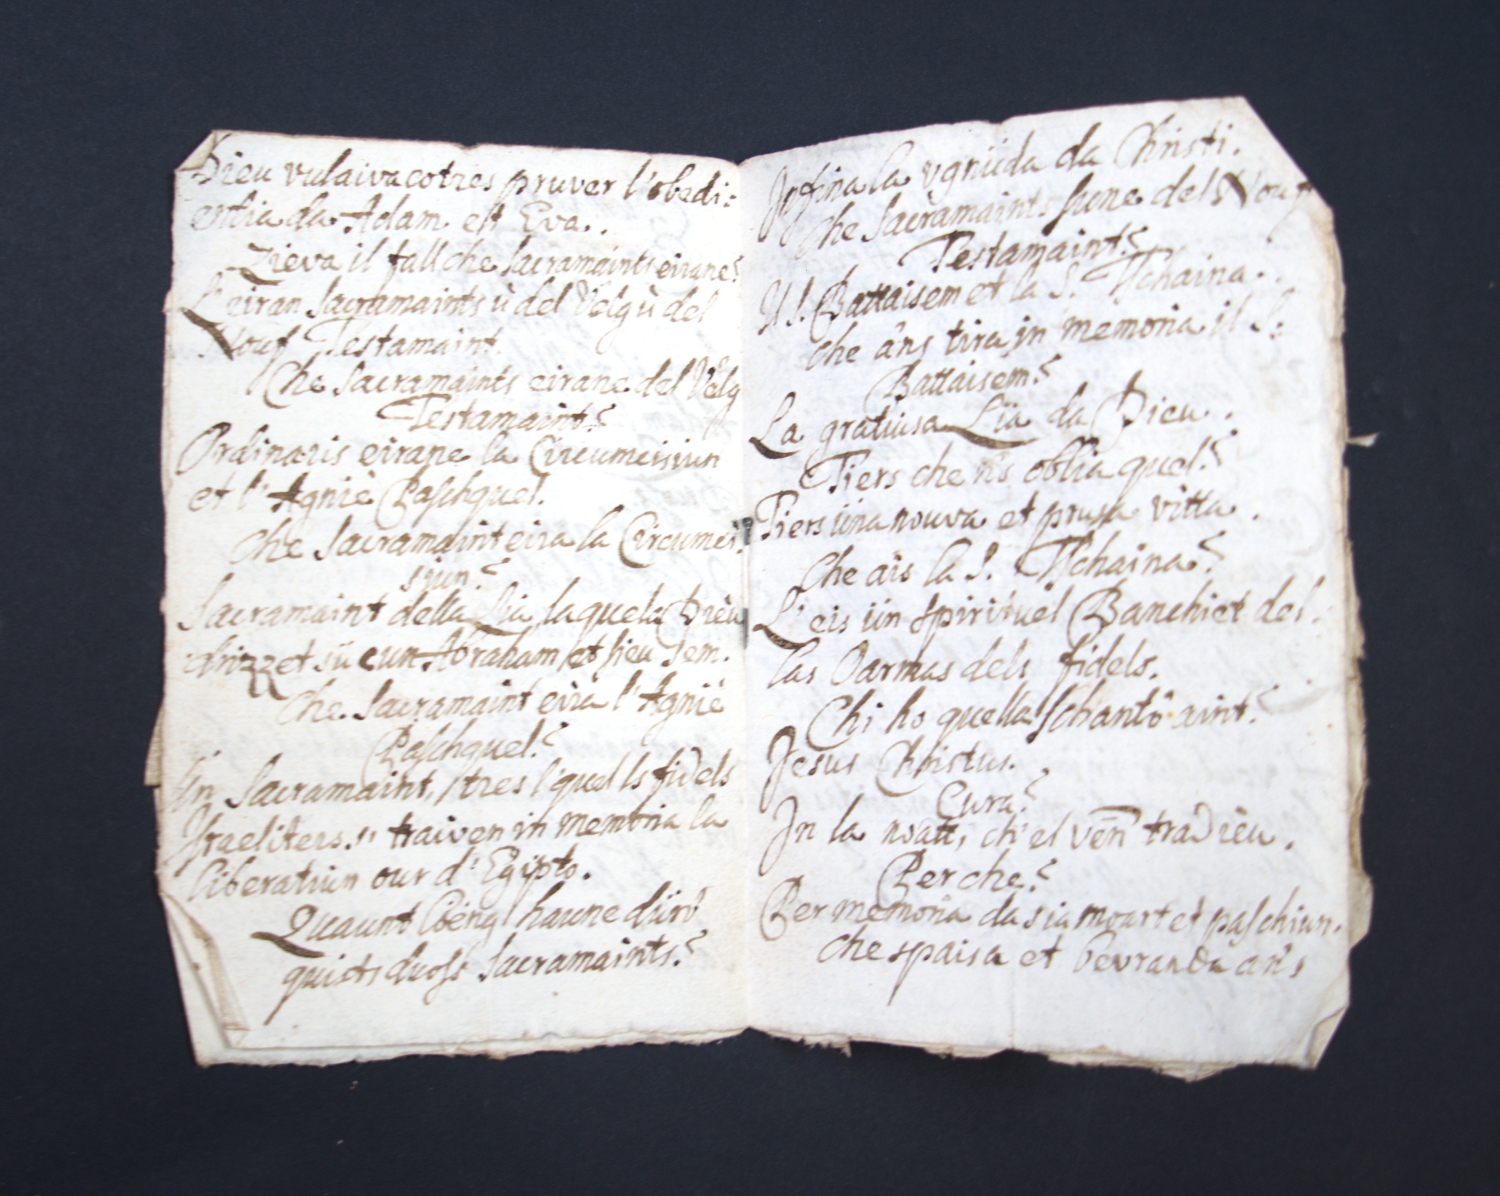 Dieu vulaiva cotres pruver l'obedi-
entia da Adam et Eva.
Zieva il fall che sacramaints eirane?
L'eiran Sacramaints ù del Velg ù del
Nouf Testamaint.
Che Sacramaints eirane del Velg
Testamaint?
Ordinaris eirane la Circumcisiun
et l'Agniè Paschquel.
Che Sacramaint eira la Circumci-
siun?
Sacramaint della Lia, laquela Dieu
drizzet sü cun Abraham et sieu Sem.
Che Sacramaint eira l'Agniè
Paschquel?
Ün Sacramaint, tres l'quel ls fidels
Israeliters traiven in memoria la
liberatiun our d'Egipto.
Quaunt Löng haune dürô
quists duos Sacramaints?
Infina la vgnüda da Christi.
Che Sacramaints sune dels Nouf
Testamaint?
Il S. Battaisem et la S. Tschaina.
Che ans tira in memoria il S:
Battaisem?
La gratiusa Lia da Dieu.
Tiers che n's oblia quel?
Tiers üna nouva et prusa vitta.
Che ais la S. Tschaina?
L'eis ün spirituel Banchiet del-
las Oarmas dels fidels.
Chi ho quella schantô aint?
Jesus Christus.
Cura?
In la noatt, ch'el vën tradieu.
Perche?
Per memoria da sia moart et paschiun.
Che spaisa et bevranda an's